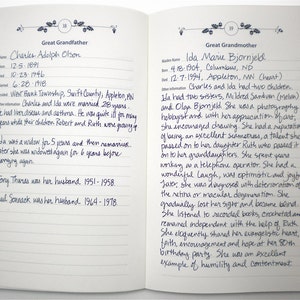 18
Great Grandfather
Name Charles Adolph Olson
Born 12.5.1891
Died 10.23.1946
Married 6.28.1918
West Bank Township, Swift County, Appleton, MN
Charles and Ida were married 28 years.
had and liver disease. He was quite ill for many
and their children Robert and Ruth were
Ida was a widow for 5 years and then remarried.
ter she was widowed again for 6 years before
rrying again.
Tony Thares was her husband, 1951-1958.
was her husband, 1964-1978.
19
Great Grandmother
Maiden Name Ida Marie Bjornjeld
Born 4.18.1904, Columbus, ND
Died 12.7.1994, Appleton, MN (heart)
Other Information Charles and Ida had two children.
Ida had two sisters, Mildred
and Olga Bjornjeld. She was a photography
hobbyist and with her appreciation of art,
she encouraged drawing. She had a reputation
of being an excellent seamstress, a talent she
passed on to her daughter Ruth who passed it
on to her granddaughters. She spent years
working as a telephone operator. She had a
wonderful laugh, was optimistic and joyful.
Later, she was diagnosed with deterioration of
the retina or macular degeneration. She
gradually lost her sight and became blind.
She listened to recorded books, crocheted and
remained independent with the help of Ruth.
She eloquently shared her evangelistic heart,
faith, encouragement and hope at her 90th
birthday party. She was an excellent
example of humility and contentment.